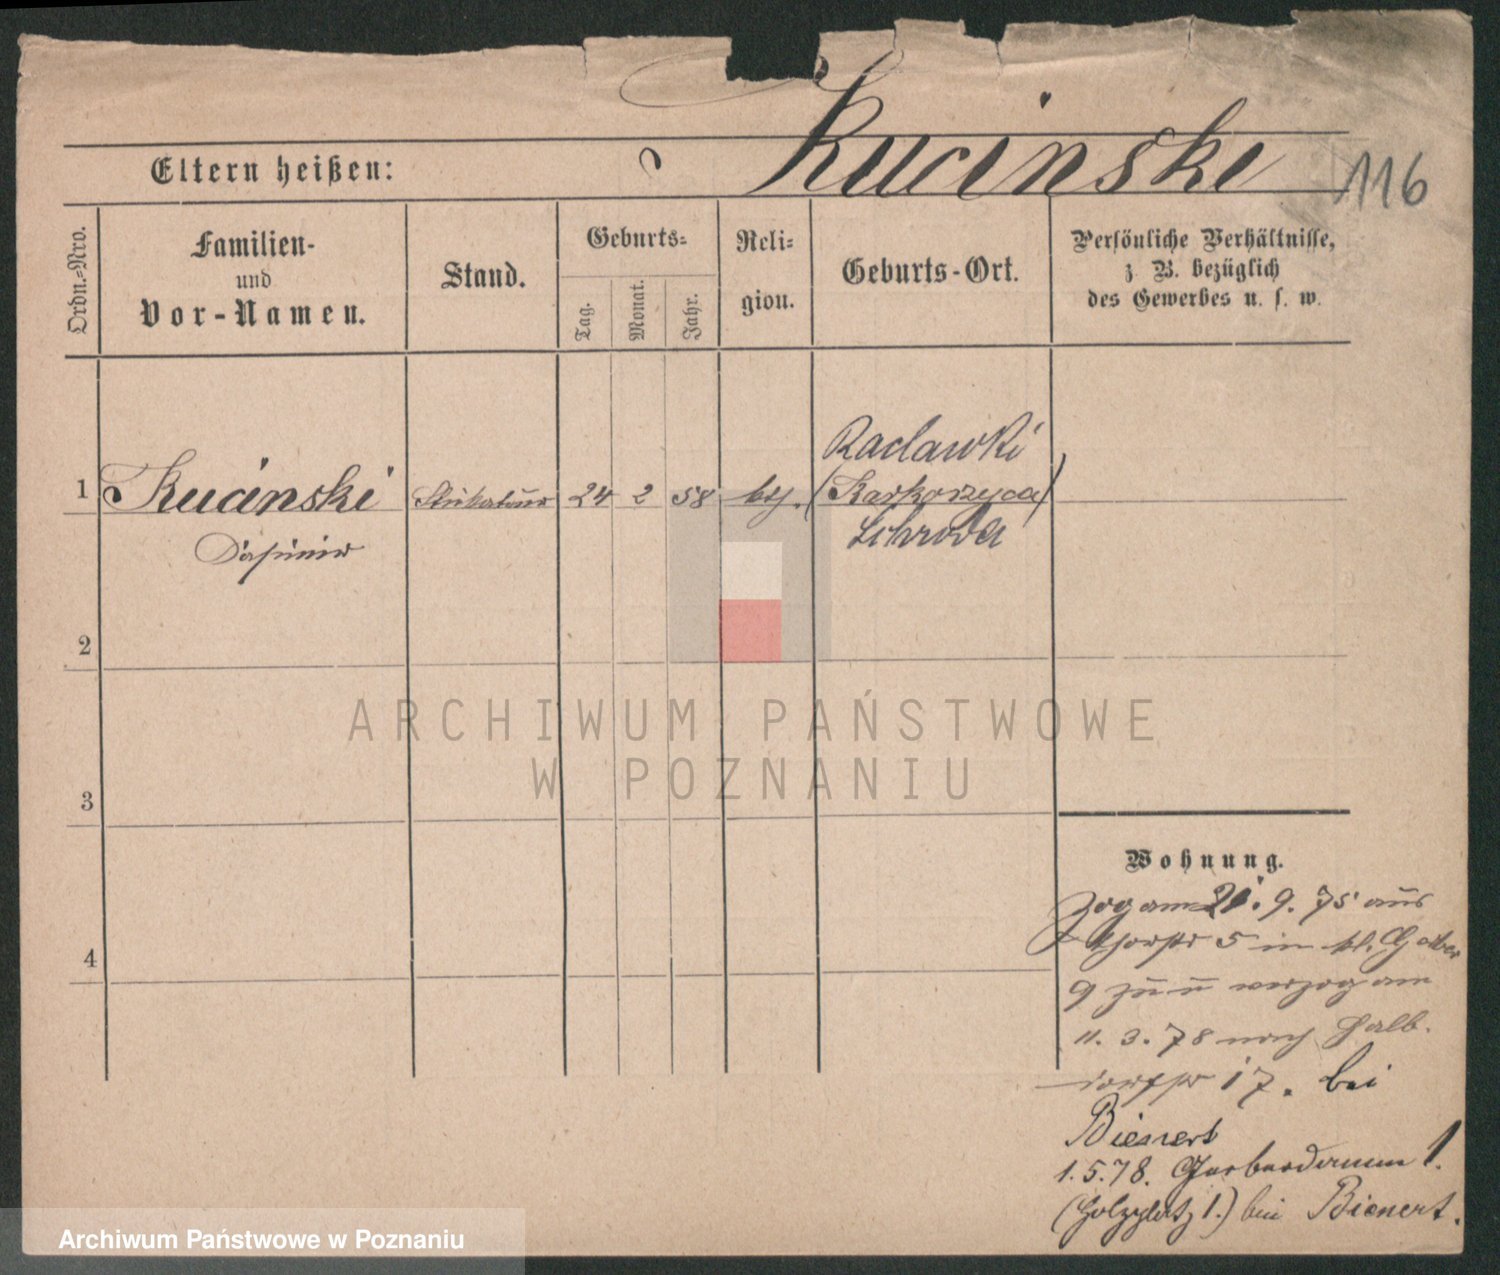 Kucinski
Eltern heißen:
116
Ordn.=Nro.
Familien-
und
Vor-Namen.
Stand.
Geburts=
Tag.
Monat.
Jahr.
Reli=
gion.
Geburts-Ort.
Persönliche Verhältnisse,
z. B. bezüglich
des Gewerbes u. s. w.
1 Kucinski 24 2 58 kth.
Raclawki
(Karkorzyca)
Schroda
2
ARCHIWUM PAŃSTWOWE
W POZNANIU
3
Wohnung.
Zog am 21. 9. 75 aus
5 in kl. Gerber
9 zu u verzog am
11. 3. 78 nach Halb
dorfstr 17. bei
Bienert
1.5.78. Gerberdamm 1.
(Holzplatz 1.) bei Bienert.
4
Archiwum Państwowe w Poznaniu